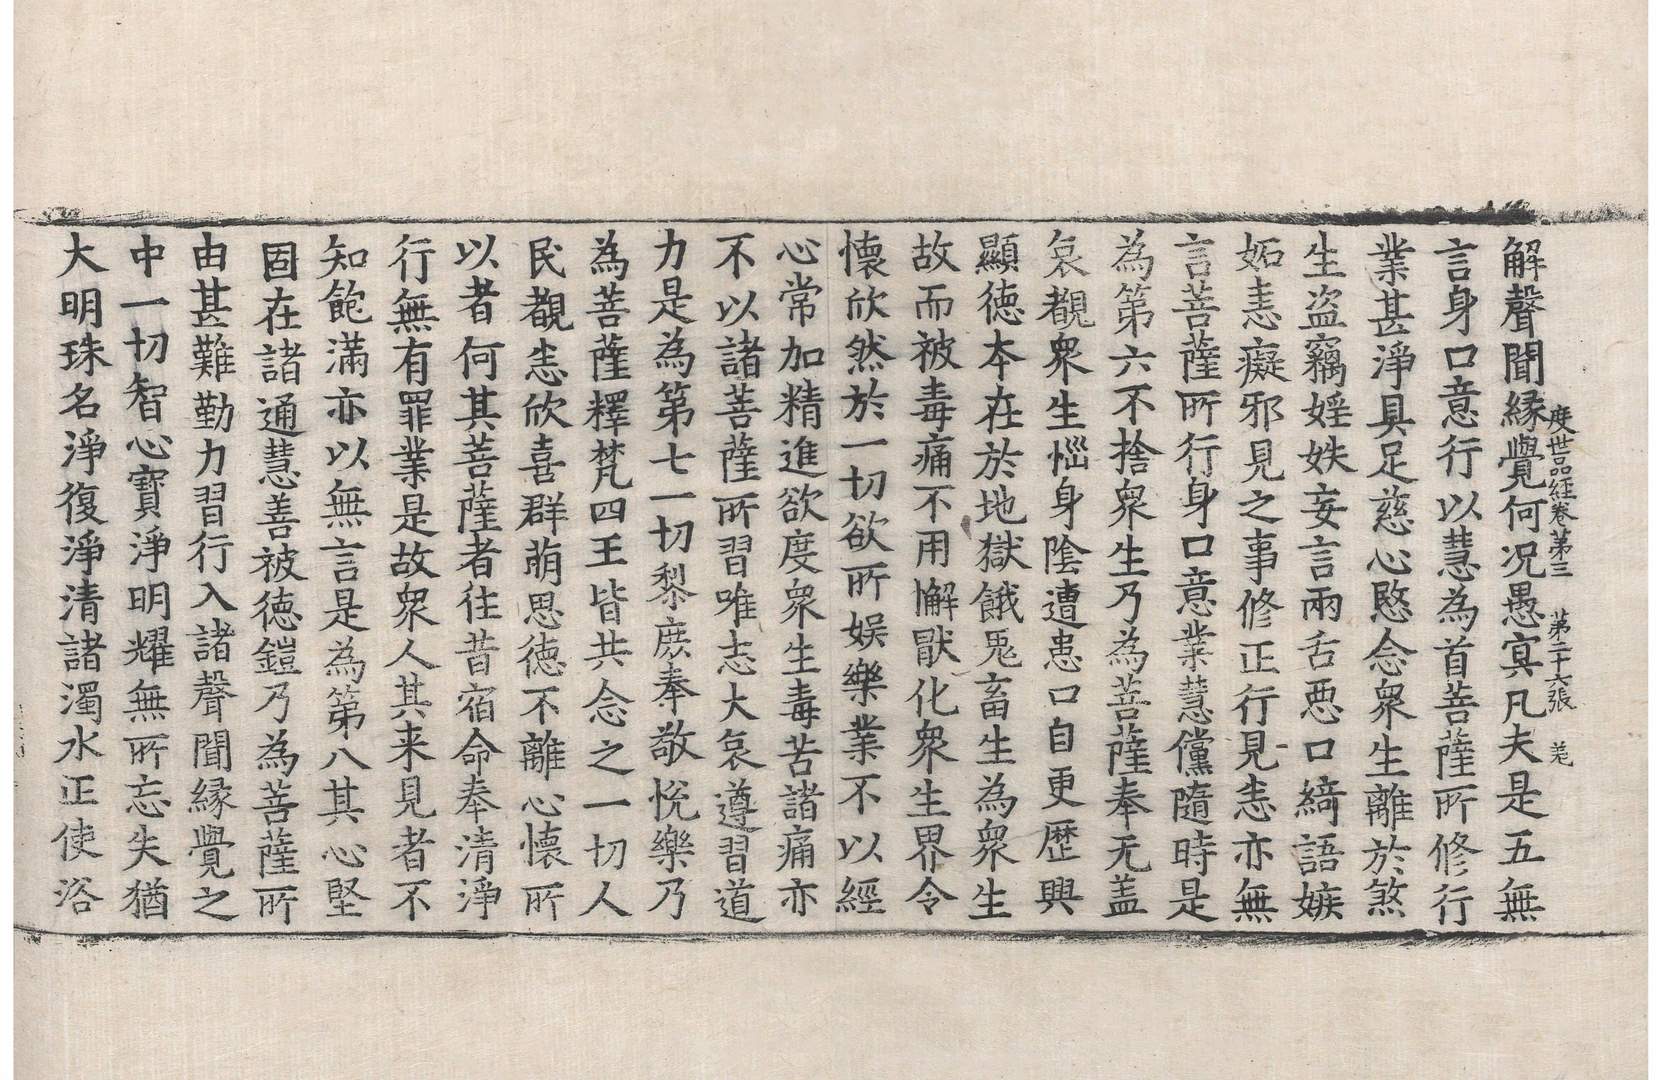 解聲聞縁覺何况愚冥凡夫是五無
度世品經卷第三　第二十六張　羌
言身口意行以慧為首菩薩所修行
業甚淨具足慈心愍念衆生離於煞
生盗竊婬妷妄言兩舌惡口綺語嫉
妬恚癡邪見之事修正行見恚亦無
言菩薩所行身口意業慧儻隨時是
為第六不捨衆生乃為菩薩奉无盖
哀觀衆生惱身陰遭患口自更歷興
顯徳本在於地獄餓鬼畜生為衆生
故而被毒痛不用懈猒化衆生界令
懐欣然於一切欲所娯樂業不以經
心常加精進欲度衆生毒苦諸痛亦
不以諸菩薩所習唯志大哀遵習道
力是為第七一切黎庶奉敬恱樂乃
為菩薩釋梵四王皆共念之一切人
民覩恚欣喜群萌思徳不離心懐所
以者何其菩薩者往昔宿命奉清淨
行無有罪業是故衆人其来見者不
知飽滿亦以無言是為第八其心堅
固在諸通慧善被徳鎧乃為菩薩所
由甚難勤力習行入諸聲聞縁覺之
中一切智心寶淨明耀無所忘失猶
大明珠名淨復淨清諸濁水正使浴